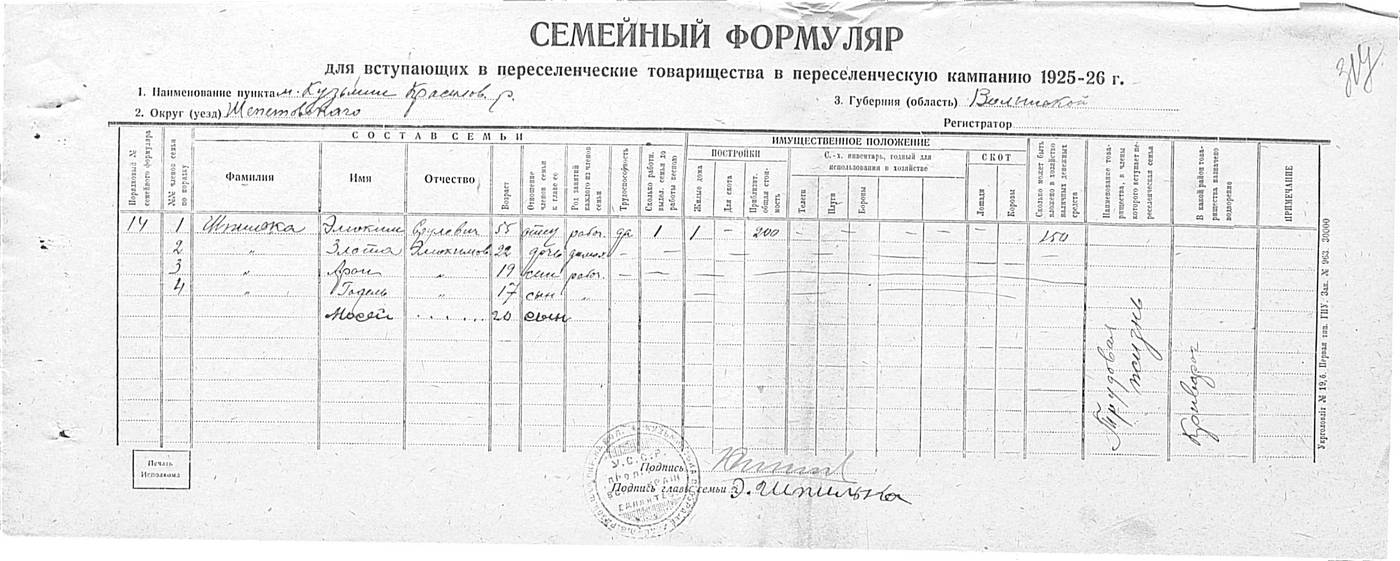 СЕМЕЙНЫЙ ФОРМУЛЯР
для вступающих в переселенческие товарищества в переселенческую кампанию 1925-26 г.
317
1. Наименование пункта м. Кузьмин Красилов. р.
3. Губерния (область) Волынской
2. Округ (уезд) Шепетовского
Регистратор
Порядковый № семейного формуляра
№№ членов семьи по порядку
СОСТАВ СЕМЬИ
Фамилия
Имя
Отчество
Возраст
Отношение членов семьи к главе ее
Род занятий каждого из членов семьи
Трудоспособность
Сколько работн. выдел. семья до работы весною
ИМУЩЕСТВЕННОЕ ПОЛОЖЕНИЕ
ПОСТРОЙКИ
Жилые дома
Для скота
Приблизит. общая стоимость
С.-х. инвентарь, годный для использования в хозяйстве
Телеги
Плуги
Бороны
СКОТ
Лошади
Коровы
Сколько может быть вложено в хозяйство наличных денежных средств
Наименование товарищества, в члены которого вступает переселенческая семья
В какой район товарищества назначено водворение
ПРИМЕЧАНИЕ
14 1 Шпилка Элюким Срулевич 55 отец рабоч. да 1 1 – 200 – – – – – – 150
2 " Злота Элюкимов 22 дочь домаш – – – –
3 " Арон " 19 сын рабоч. – – –
4 " Годель " 17 сын " – – –
Мосей . . . . . . 20 сын
Трудовая жизнь
Криворог
Печать Исполкома
У.С.С.Р.
Подпись
Подпись главы семьи Э. Шпилька
Укрголовліт № 19, б. Первая тип. ГПУ. Зак. № 963. 30000